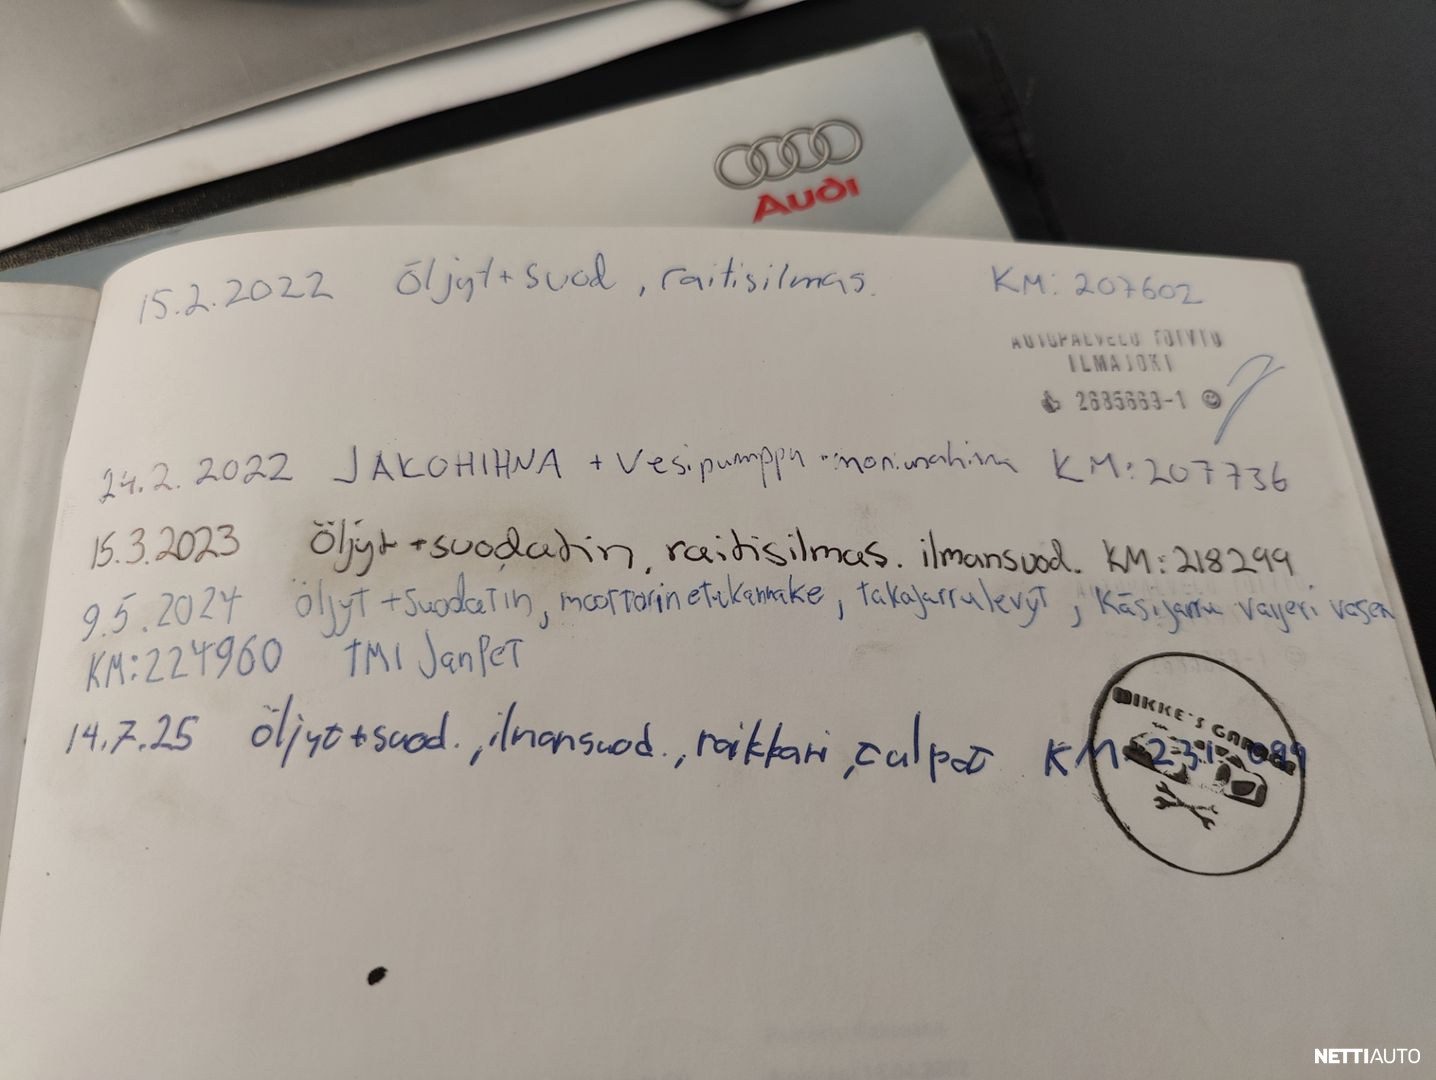 Audi
15.2.2022 Öljyt + suod, raitisilmas. KM: 207602
AUTOPALVELU TOIVIO
ILMAJOKI
2685669-1
24.2.2022 JAKOHIHNA + Vesipumppu + moniurahihna KM: 207736
15.3.2023 Öljyt + suodatin, raitisilmas. ilmansuod. KM: 218299
9.5.2024 Öljyt + suodatin, moottorin etukannake, takajarrulevyt, Käsijarru vaijeri vasen
KM: 224960 TMI JanPet
14.7.25 Öljyt + suod., ilmansuod., raikkari, tulpat KM: 231
MIKKE'S GARAGE
NETTIAUTO